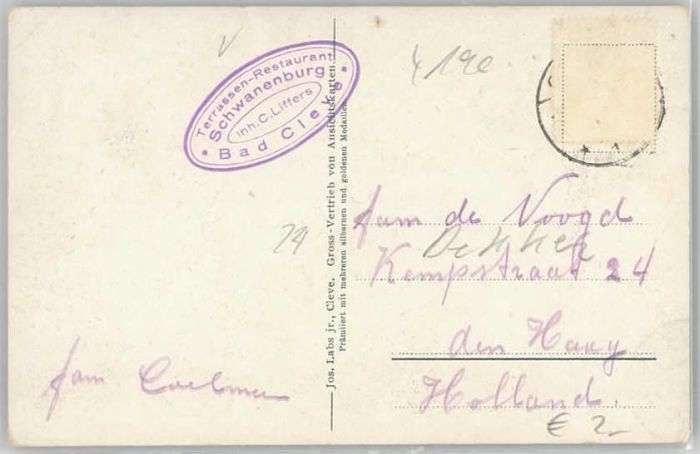 Terrassen-Restaurant
Schwanenburg
Inh. C. Liffers
* Bad Cleve *
Jos. Labs jr., Cleve. Gross-Vertrieb von Ansichtskarten.
Prämiiert mit mehreren silbernen und goldenen Medaillen.
fam de Voogd
Kempstraat 24
den Haag
Holland.
fam
24
€ 2-